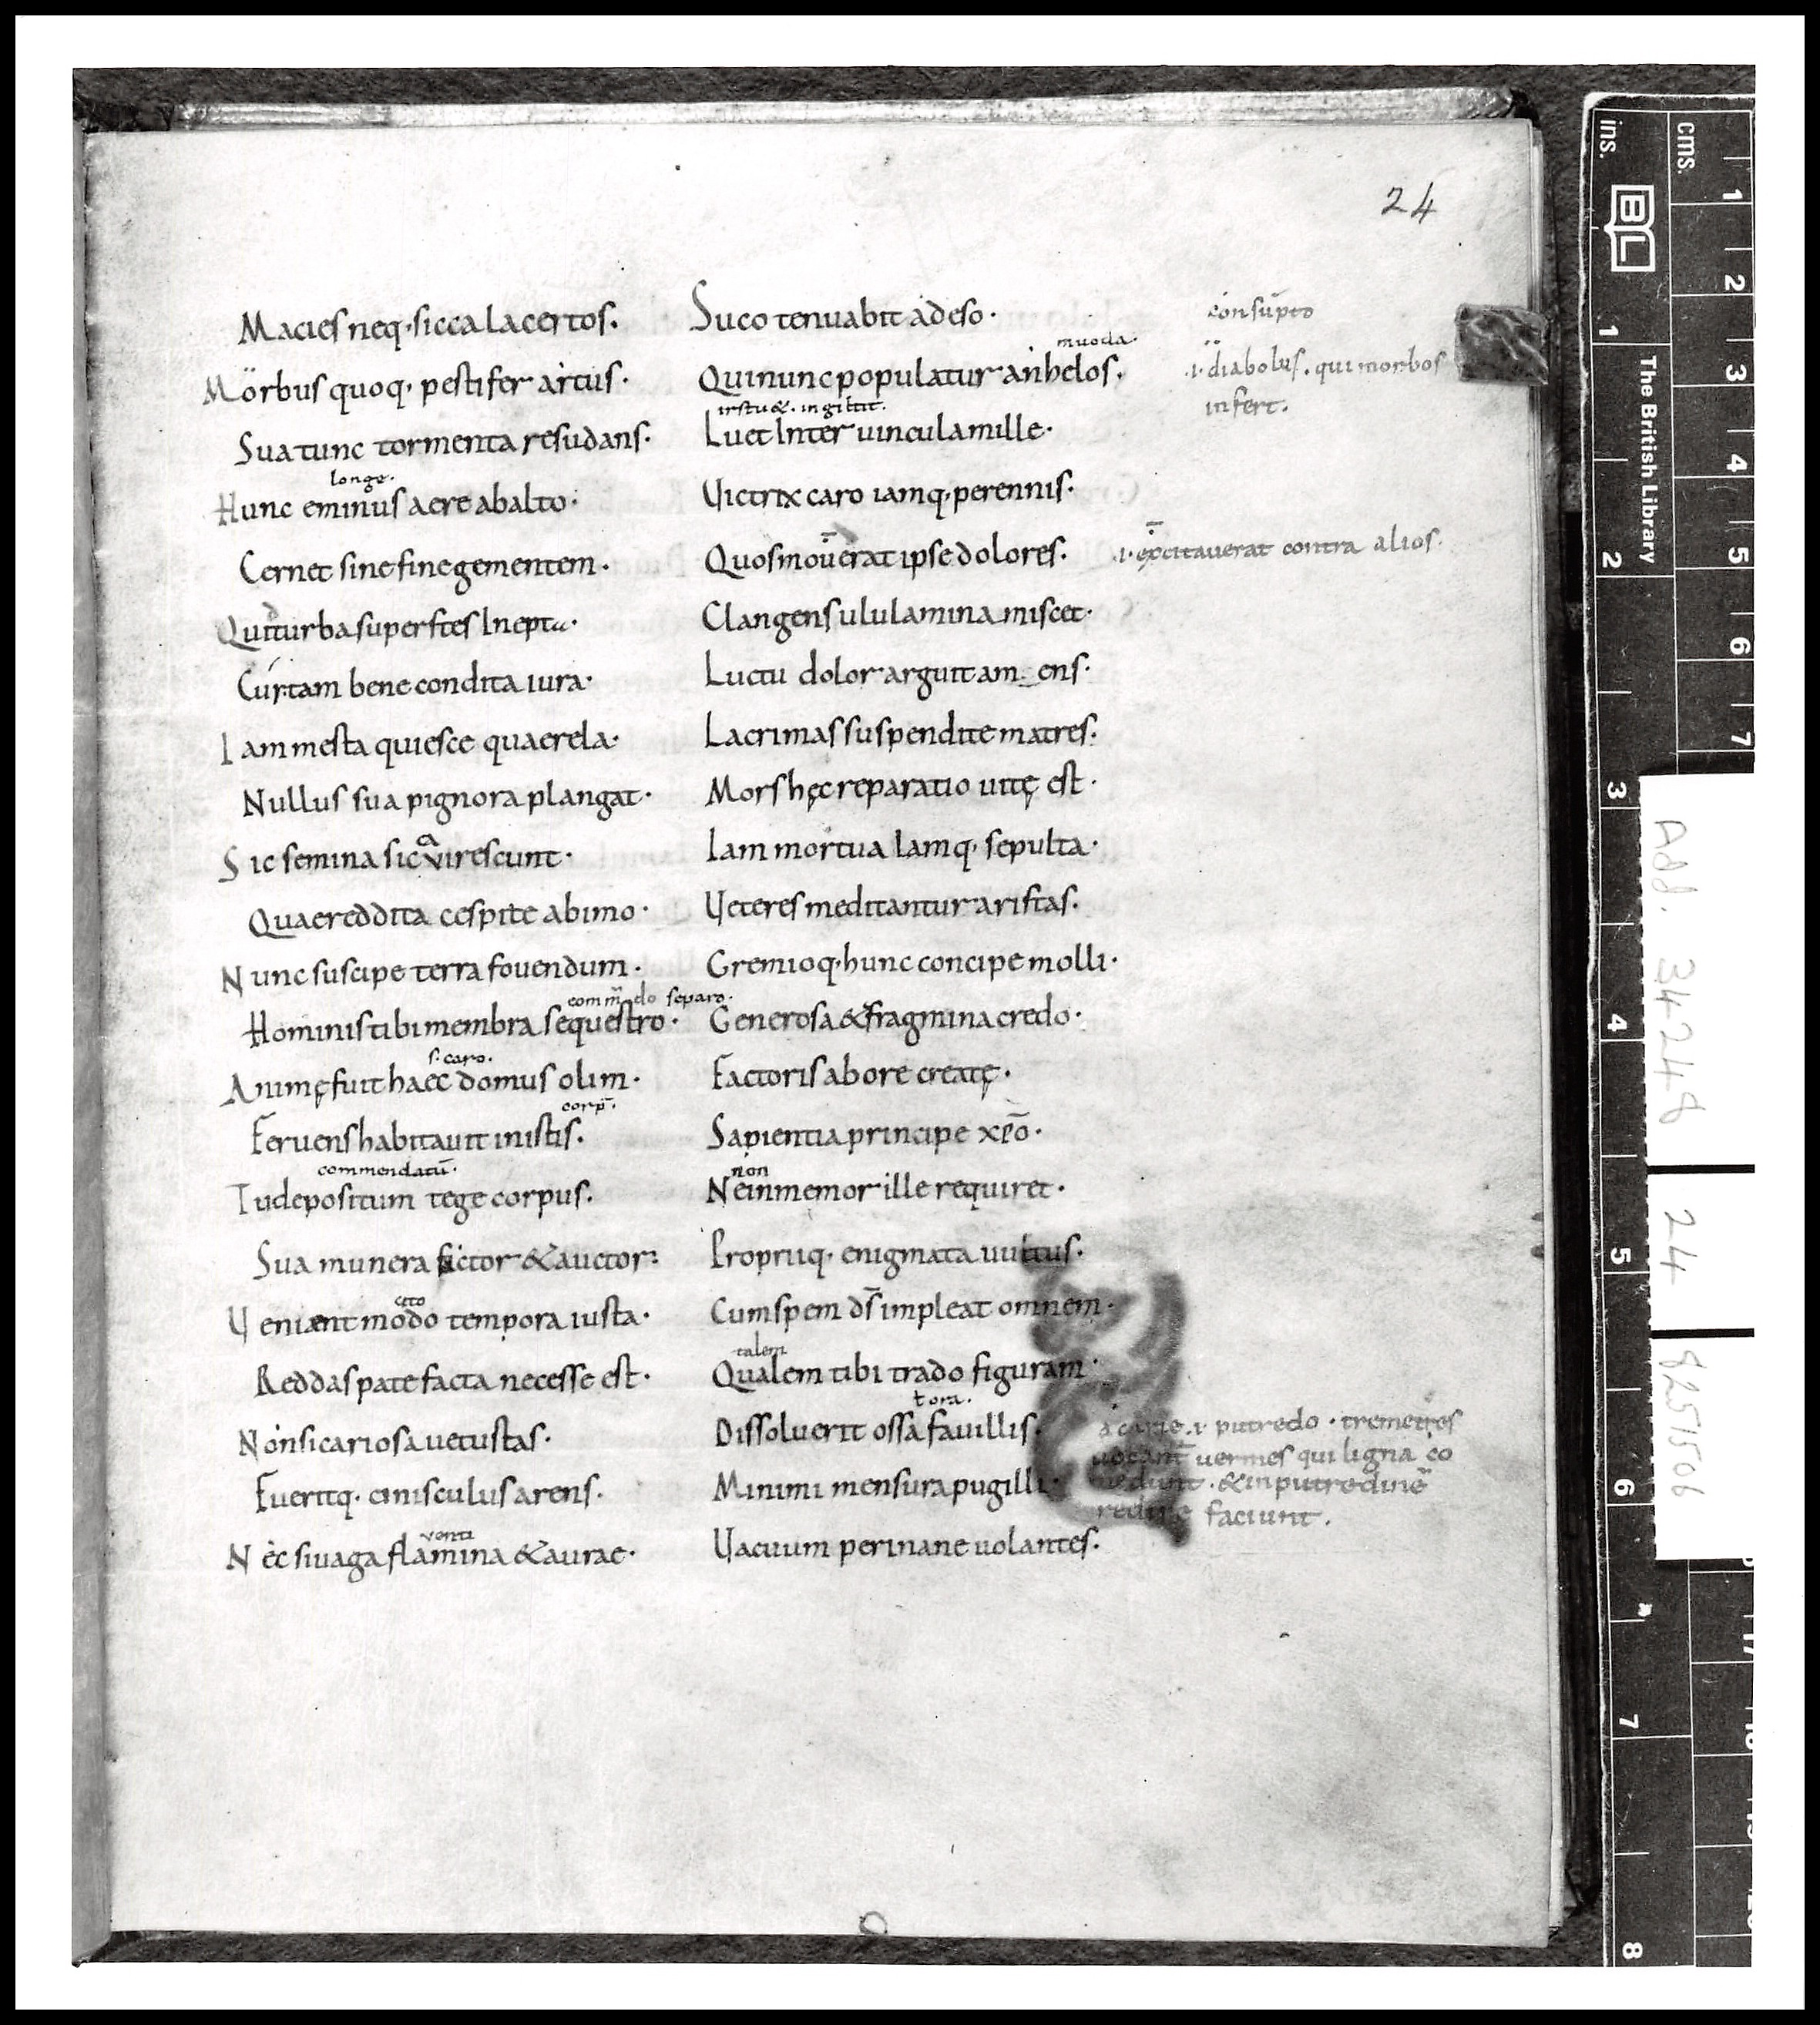 24
Macies neq· sicca lacertos· Suco tenuabit adeso· consūpto
muoda·
Morbus quoq· pestifer artus· Qui nunc populatur anhelos· ·i· diabolus· qui morbos
infert·
Sua tunc tormenta resudans· Luet Inter uincula mille·
longe·
Hunc eminus aere ab alto· Uictrix caro iamq· perennis·
Cernet sine fine gementem· Quos mouerat ipse dolores· ·i· excitauerat contra alios·
Quid turba superstes Inepta· Clangens ululamina miscet·
Cur tam bene condita iura· Luctu dolor arguit amens·
Iam mesta quiesce quaerela· Lacrimas suspendite matres·
Nullus sua pignora plangat· Mors hęc reparatio uitę est·
a
Sic semina sicVirescunt· Iam mortua Iamq· sepulta·
Quae reddita cespite ab imo· Ueteres meditantur aristas·
Nunc suscipe terra fouendum· Gremioq· hunc concipe molli·
separo·
Hominis tibi membra sequestro· Generosa & fragmina credo·
s· caro·
Animę fuit haec domus olim· Factoris ab ore creatę·
corp̄·
Feruens habitauit in istis· Sapientia principe xp̄o·
commendatū· non
Tu depositum tege corpus· Ne inmemor ille requiret·
Sua munera fictor & auctor· Propriiq· enigmata uultus·
cito
Ueniant modo tempora iusta· Cum spem d̄s impleat omnem·
talem
Reddas patefacta necesse est· Qualem tibi trado figuram·
Non si cariosa uetustas· Dissoluerit ossa fauillis· a carie·i· putredo· tremetres
uocant̄ uermes qui ligna cō
Fueritq· cinisculus arens· Minimi mensura pugilli· medunt· & in putredinē
redire faciunt·
venti
Nec si uaga flamina & aurae· Uacuum per inane uolantes·
ins. cms.
BL
The British Library
1 2 3 4 5 6 7 8
1 2 3 4 5 6 7
Add. 34248
24
8251506